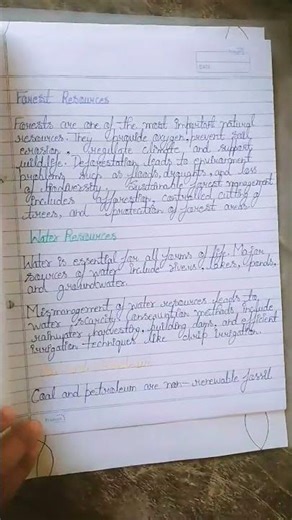 Forest Resources
Forests are one of the most important natural
resources. They provide oxygen, prevent soil
erosion, regulate climate and support
wildlife. Deforestation leads to environment
problems such as floods, droughts, and loss
of biodiversity. Sustainable forest management
includes afforestation, controlled cutting of
trees, and protection of forest areas.
Water Resources
Water is essential for all forms of life. Major
sources of water include rivers, lakes, ponds,
and groundwater.
Mismanagement of water resources leads to
water scarcity. Conservation methods include
rainwater harvesting, building dams, and efficient
irrigation techniques like drip irrigation.
Coal and petroleum are non-renewable fossil